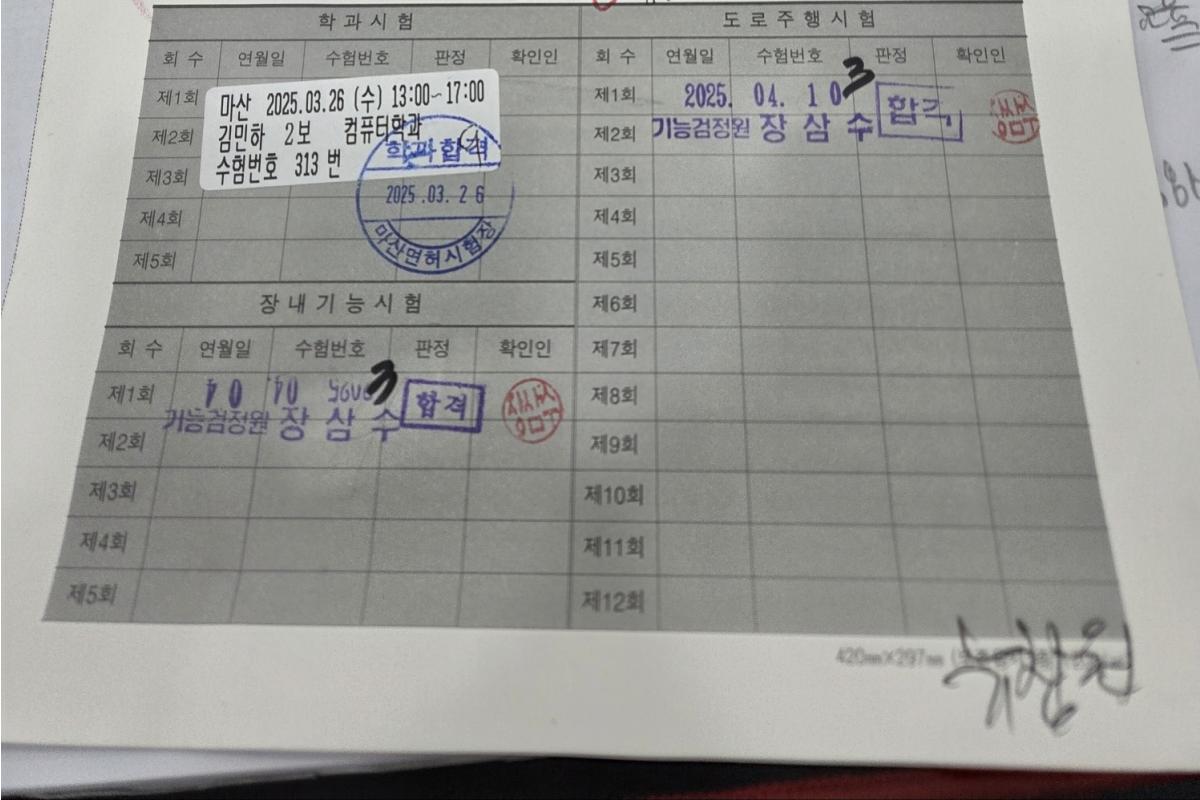 학과시험
회 수 연월일 수험번호 판정 확인인
제1회
마산 2025.03.26 (수) 13:00~17:00
제2회
김민하 2보 컴퓨터학과
수험번호 313 번
학과합격
제3회
2025.03.26
제4회
마산면허시험장
제5회
장내기능시험
회 수 연월일 수험번호 판정 확인인
제1회 04 04 2025 3 합격
기능검정원 장삼수
제2회
제3회
제4회
제5회
도로주행시험
회 수 연월일 수험번호 판정 확인인
제1회 2025. 04. 10 3 합격
제2회 기능검정원 장삼수
제3회
제4회
제5회
제6회
제7회
제8회
제9회
제10회
제11회
제12회
420㎜×297㎜